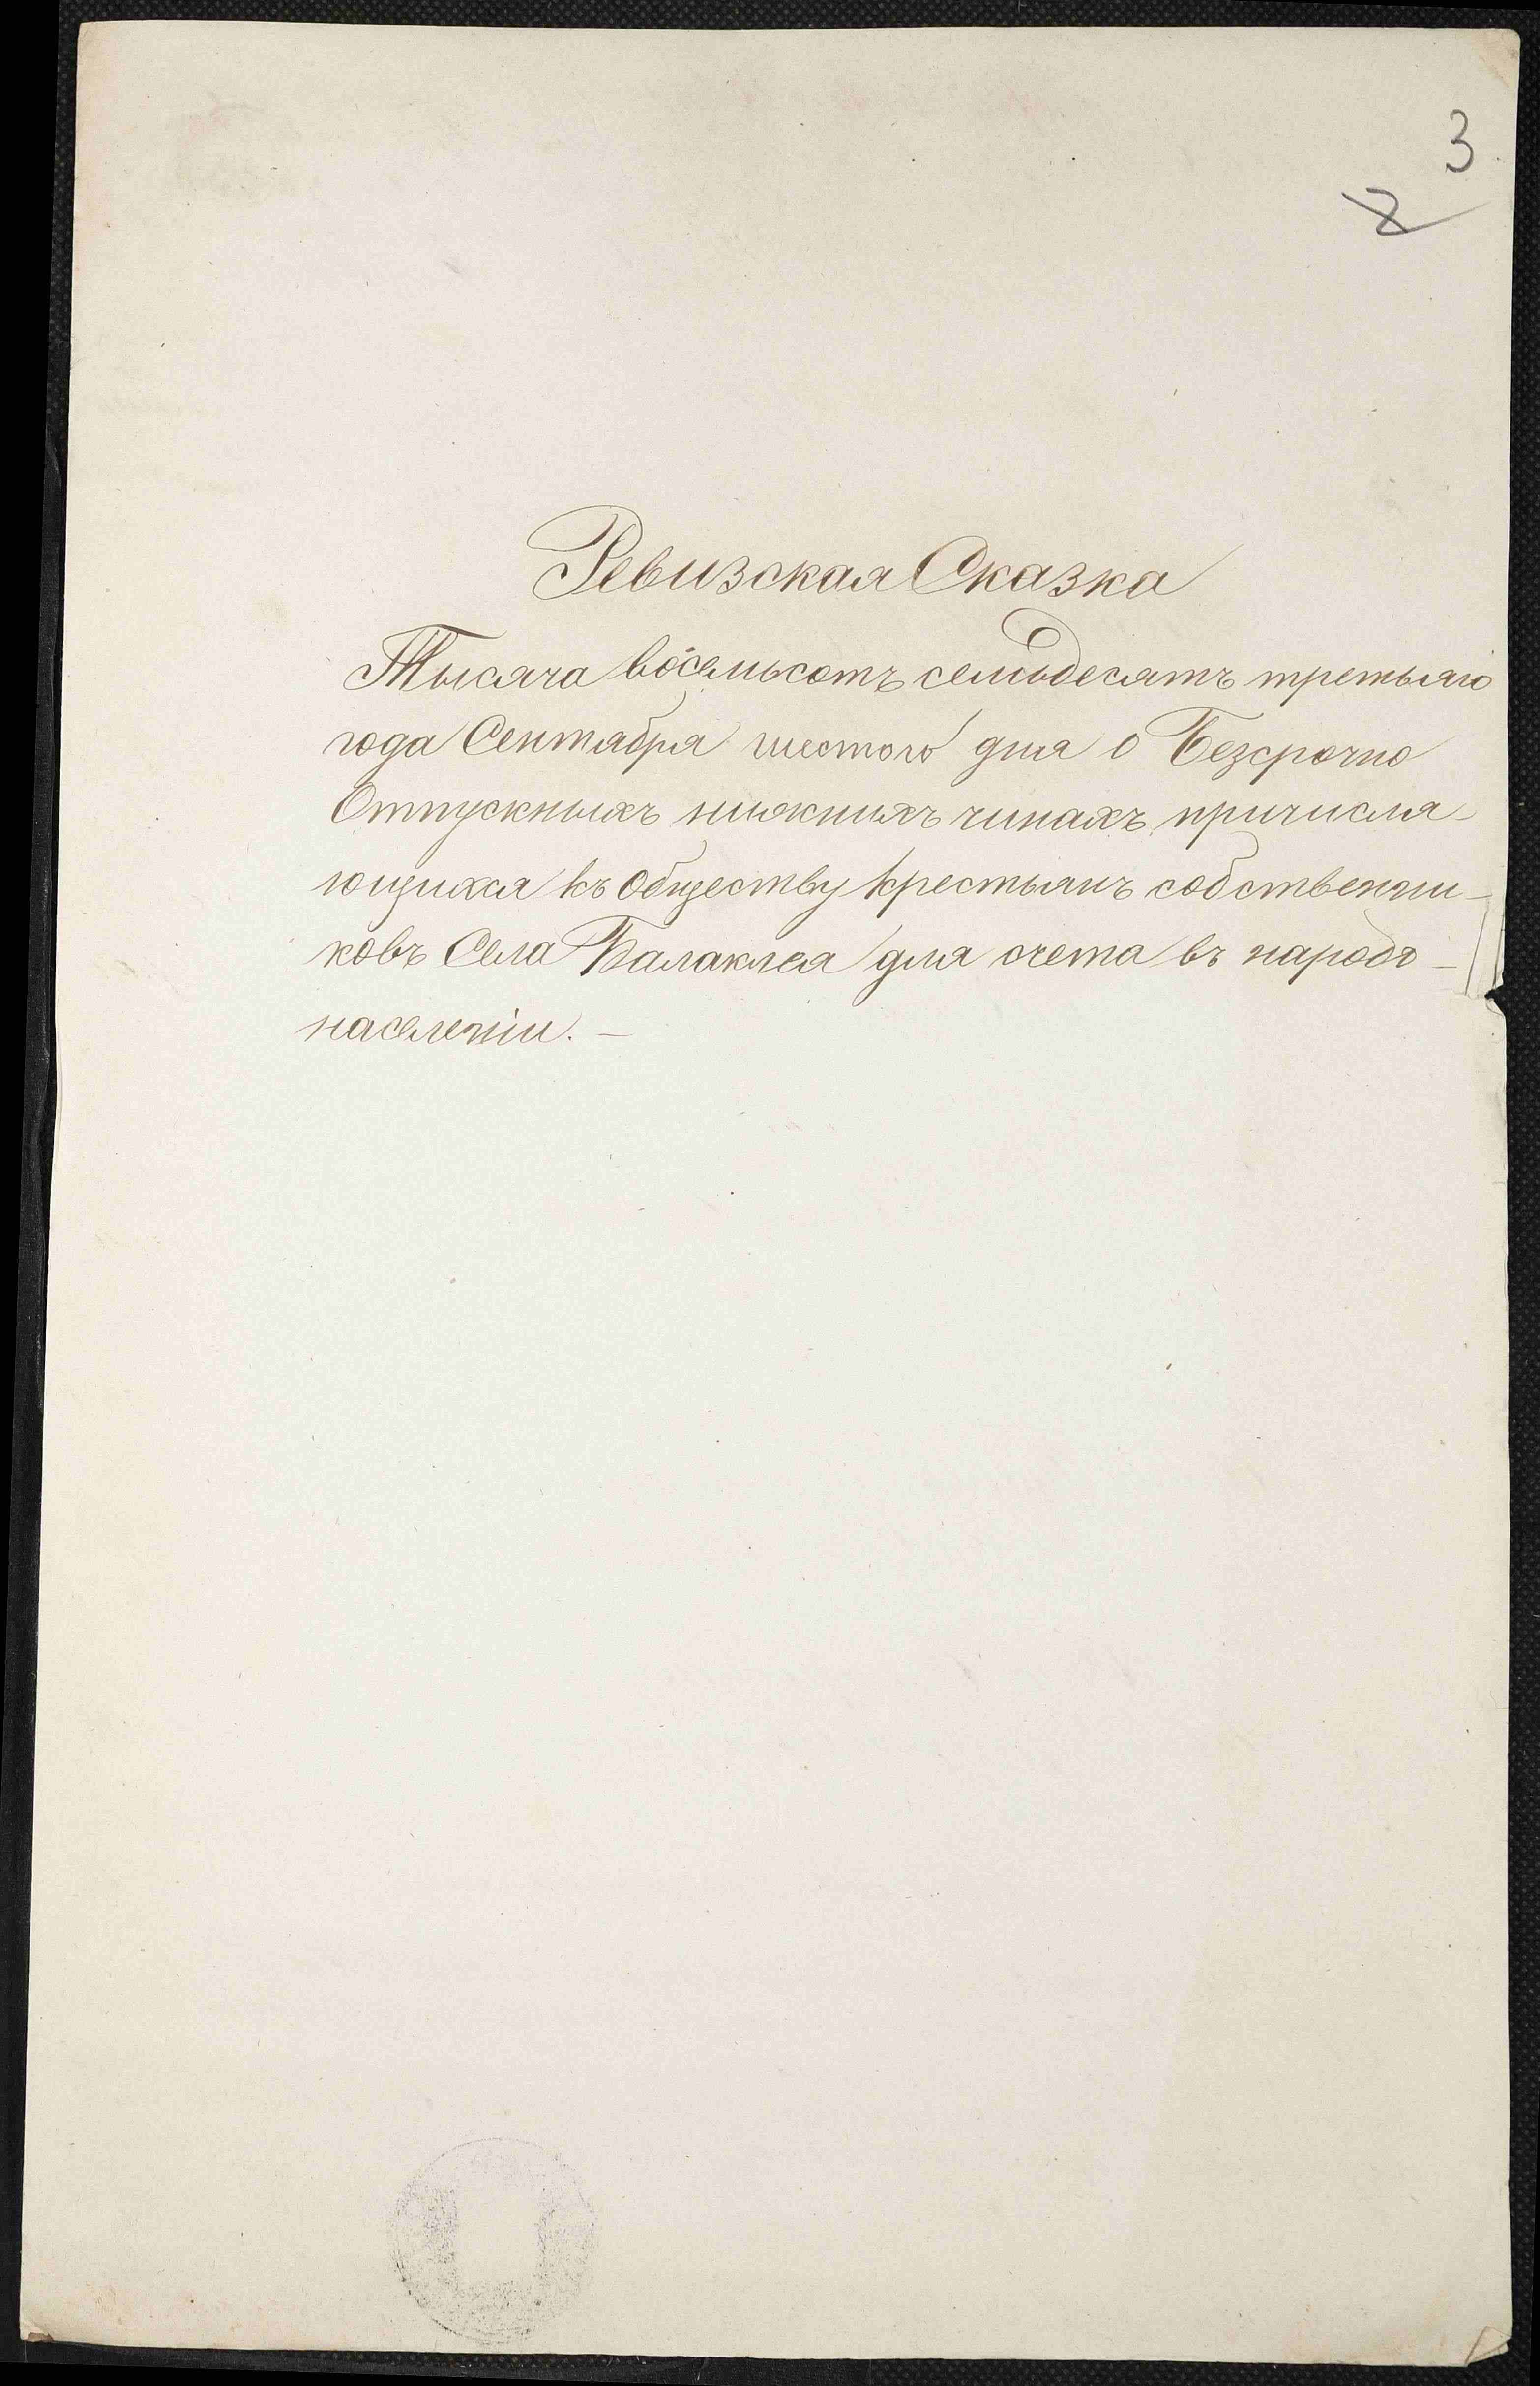 3
2
Ревизская Сказка
Тысяча восемьсотъ семьдесятъ третьяго
года Сентября шестого дня о Безсрочно
Отпускныхъ нижнихъ чинахъ причисля-
ющихся къ Обществу крестьянъ собственни-
ковъ Села Балаклея для счета въ народо-
населеніи. —